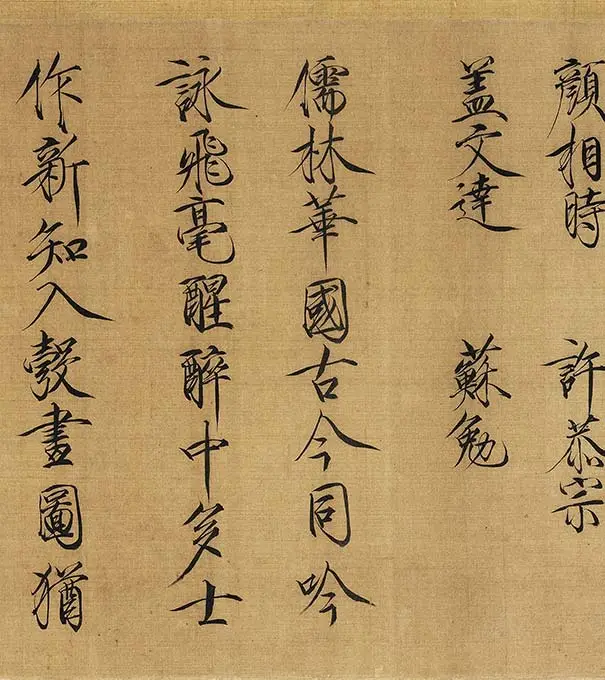 顏相時 許恭宗
蓋文達 蘇勉
儒林華國古今同吟
詠飛毫醒醉中多士
作新知入彀畫圖猶